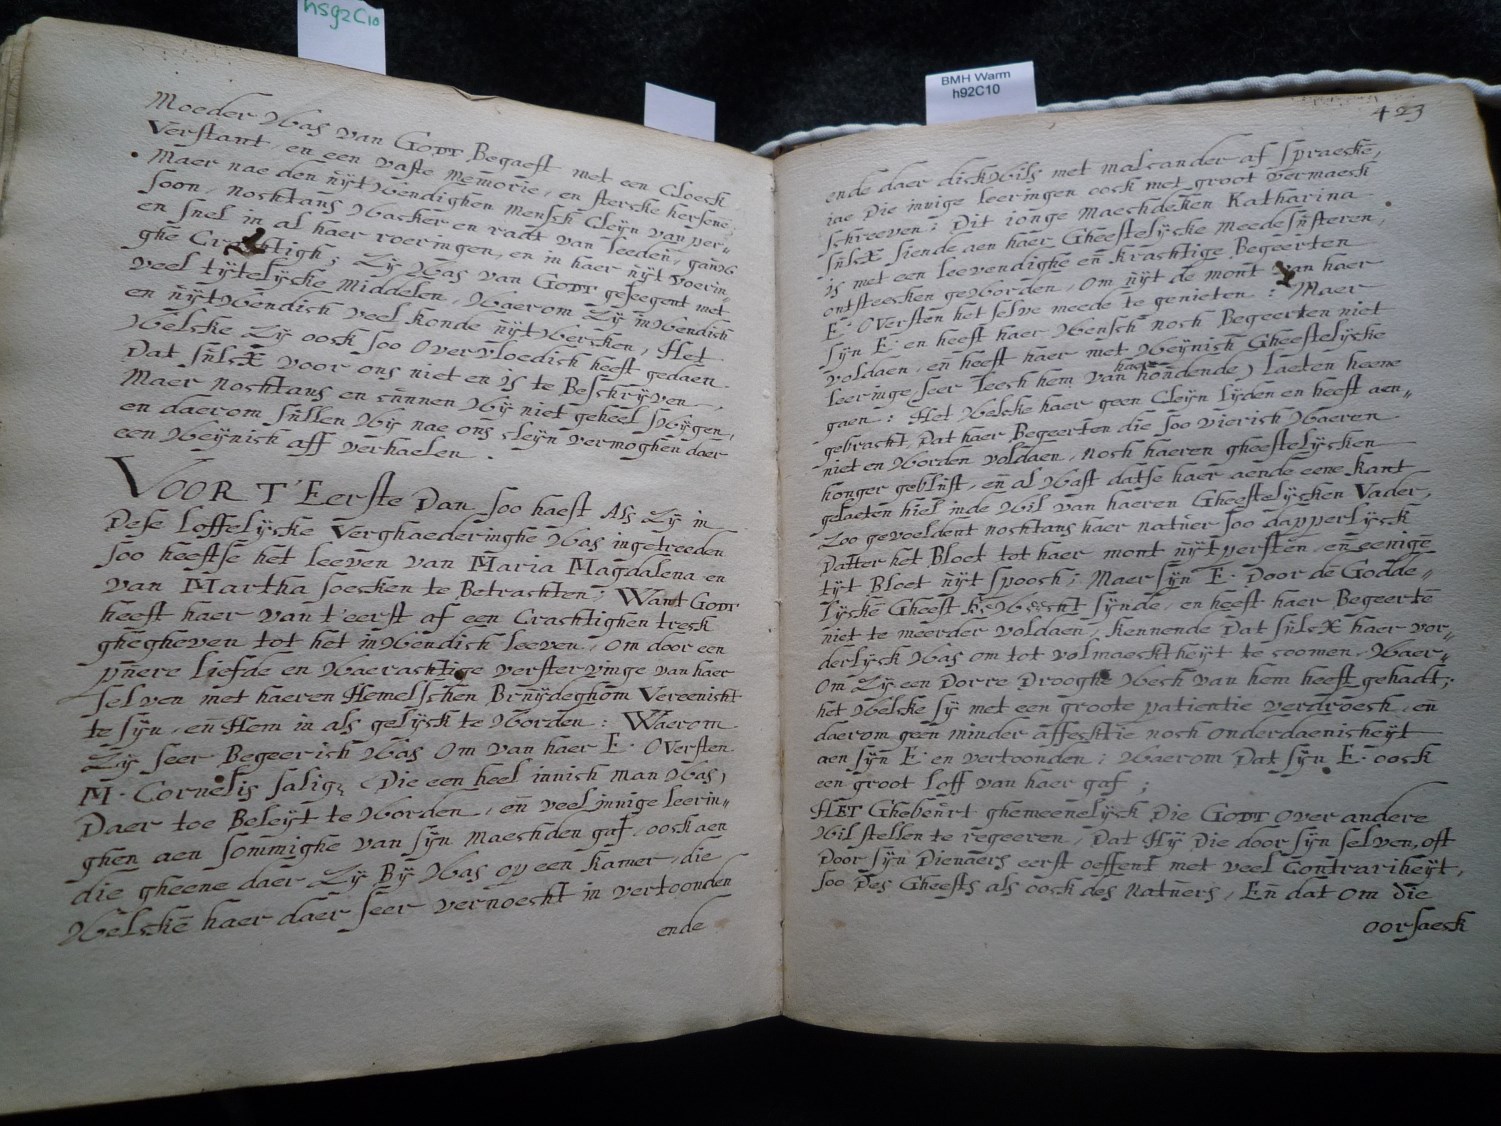 hs92C10
BMH Warm
h92C10
Moeder Was van GODT Begaeft met een Cloeck
Verstant, en een vaste Memorie, en stercke hersene,
Maer nae den uÿtWendighen mensch Cleÿn van per-
soon, nochtans Wacker en radt van leeden, gansch
en snel in al haer roeringen, en in haer uÿt voerin-
ghe Crachtigh; Zÿ Was van GODT geseegent met
veel tÿtelÿcke middelen, Waerom Zÿ inWendich
en uÿtWendich veel konde uÿtWercken, Het
Welcke Zÿ oock soo overvloedich heeft gedaen
Dat sulcx voor ons niet en is te Beschrÿven,
Maer nochtans en cunnen Wÿ niet geheel sWÿgen,
en daerom sullen Wÿ nae ons cleÿn vermoghen daer
een Weÿnich aff verhaelen.
VOOR T'Eerste Dan soo haest Als Zÿ in
Dese loffelÿcke Verghaederinghe Was ingetreeden
soo heeftse het leeven van Maria Magdalena en
van Martha soecken te Betrachten; Want GODT
heeft haer van t'eerst af een Crachtighen treck
ghegheven tot het inWendich leeven, om door een
puere liefde en Waerachtige verstervinge van haer
selven met haeren Hemelschen Bruÿdeghom Vereenicht
te sÿn, en Hem in als gelÿck te Worden: Waerom
Zÿ seer Begeerich Was om van haer E. Oversten
M. Cornelis salig, (Die een heel innich man Was)
Daer toe Beleÿt te Worden, en veel innige leerin-
ghen aen sommighe van sÿn Maechden gaf, oock aen
die gheene daer Zÿ Bÿ Was op een kamer, die
Welcke haer daer seer vernoecht in vertoonden
ende
423
ende daer dickWils met malcander af spraecke,
iae Die innige leeringen oock met groot vermaeck
schreeven; Dit ionge Maechdeken Katharina
sulcx siende aen haer Gheestelÿcke meedesusteren,
is met een leevendighe en krachtige Begeerten
ontsteecken geWorden, om uÿt de mont van haer
E. Oversten het selve meede te genieten: Maer
sÿn E. en heeft haer Wensch noch Begeerten niet
voldaen, en heeft haer met Weÿnich Gheestelÿcke
haer
leeringe seer leech hem van houdende) laeten heene
gaen: Het Welcke haer geen Cleÿn lÿden en heeft aen-
gebracht, Dat haer Begeerten die soo vierich Waeren
niet en Worden voldaen, noch haeren gheestelÿcken
honger geblust, en al Wast datse haer aende eene kant
gelaeten hiel inde Wil van haeren Gheestelÿcken Vader,
Zoo gevoeldent nochtans haer natuer soo dapperlÿck
Datter het Bloet tot haer mont uÿt persten, en eenige
tÿt Bloet uÿt spooch; Maer sÿn E. Door de Godde-
lÿcke Gheest BeWeecht sÿnde, en heeft haer Begeerte
niet te meerder voldaen, kennende Dat sulcx haer vor-
derlÿck Was om tot volmaecktheÿt te coomen, Waer-
om Zÿ een Dorre Drooghe Wech van hem heeft gehadt;
het Welcke sÿ met een groote patientie verdroech, en
daerom geen minder affecktie noch onderdaenicheÿt
aen sÿn E. en vertoonden; Waerom Dat sÿn E. oock
een groot loff van haer gaf;
HET Ghebeurt ghemeenelÿck Die GODT over andere
Wil stellen te regeeren, Dat Hÿ Die door sÿn selven, oft
Door sÿn Dienaers eerst oeffent met veel Contrariheÿt,
soo Des Gheests als oock des Natuers, En dat om die
oorsaeck